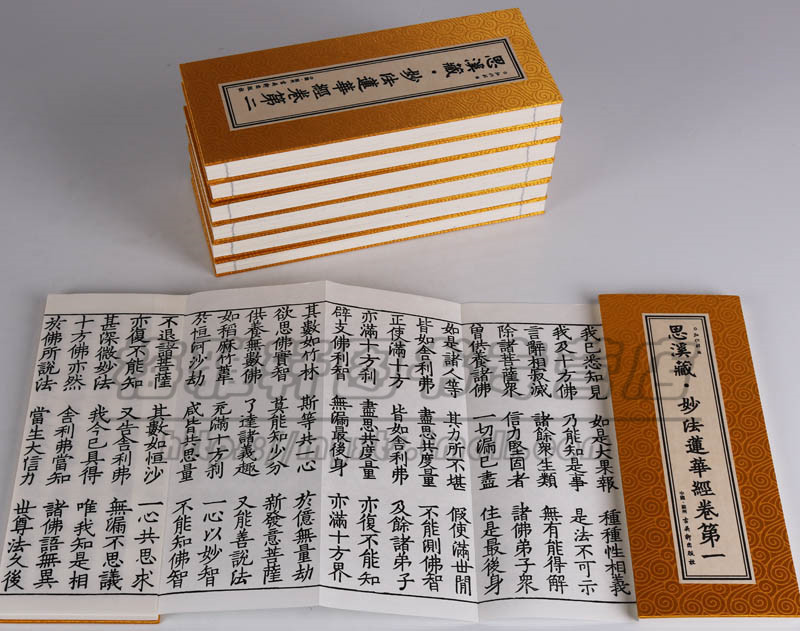 思溪藏·妙法蓮華經卷第二
思溪藏·妙法蓮華經卷第一
我已悉知見 如是大果報 種種性相義
我及十方佛 乃能知是事 是法不可示
言辭相寂滅 諸餘衆生類 無有能得解
除諸菩薩衆 信力堅固者 諸佛弟子衆
曾供養諸佛 一切漏已盡 住是最後身
如是諸人等 其力所不堪 假使滿世間
皆如舍利弗 盡思共度量 不能測佛智
正使滿十方 皆如舍利弗 及餘諸弟子
亦滿十方刹 盡思共度量 亦復不能知
辟支佛利智 無漏最後身 亦滿十方界
其數如竹林 斯等共一心 於億無量劫
欲思佛實智 莫能知少分 新發意菩薩
供養無數佛 了達諸義趣 又能善說法
如稻麻竹葦 充滿十方刹 一心以妙智
於恒河沙劫 咸皆共思量 不能知佛智
不退諸菩薩 其數如恒沙 一心共思求
亦復不能知 又告舍利弗 無漏不思議
甚深微妙法 我今已具得 唯我知是相
十方佛亦然 舍利弗當知 諸佛語無異
於佛所說法 當生大信力 世尊法久後